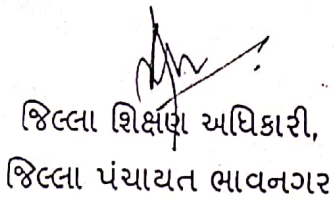 જિલ્લા શિક્ષણ અધિકારી,
જિલ્લા પંચાયત ભાવનગર